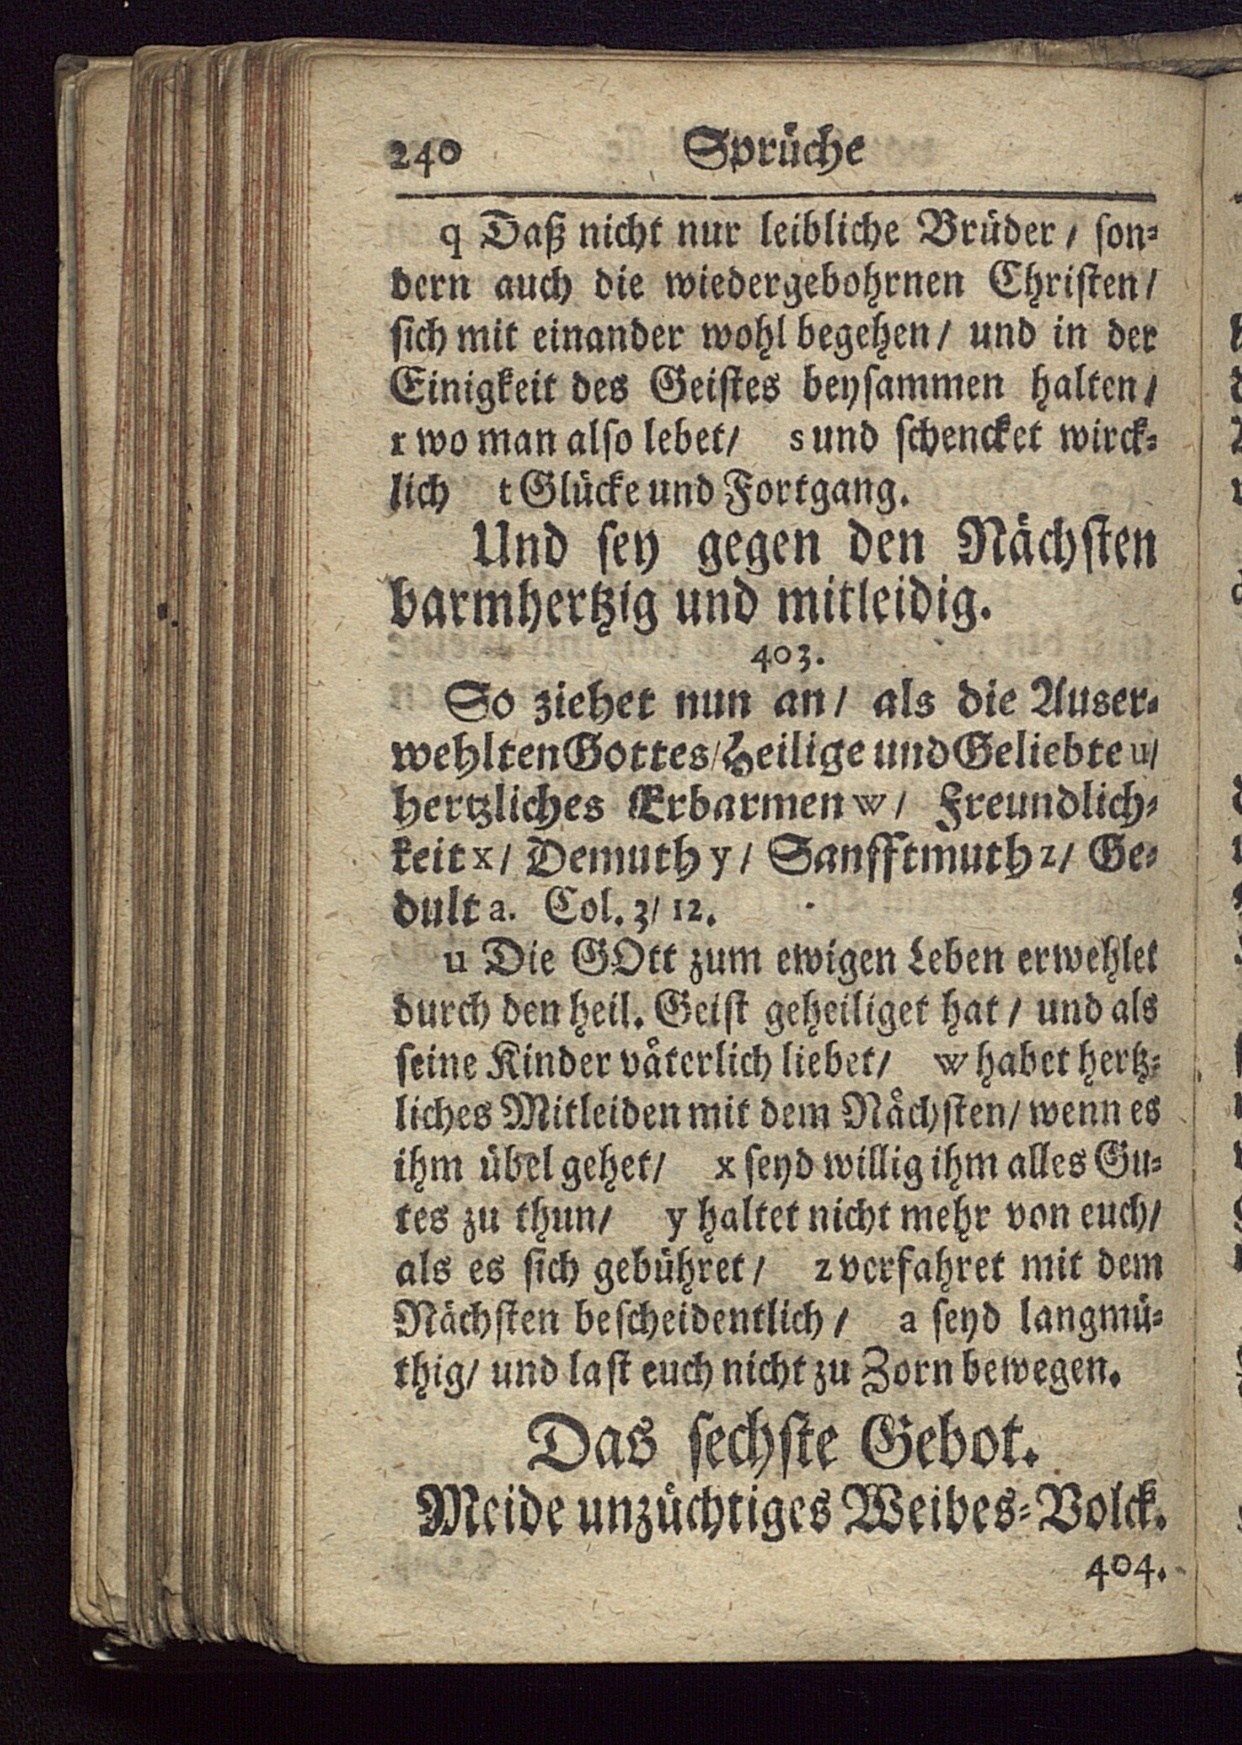 240 Sprüche
q Daß nicht nur leibliche Brüder / son-
dern auch die wiedergebohrnen Christen /
sich mit einander wohl begehen / und in der
Einigkeit des Geistes beysammen halten /
r wo man also lebet / s und schencket wirck-
lich t Glücke und Fortgang.
Und sey gegen den Nächsten
barmhertzig und mitleidig.
403.
So ziehet nun an / als die Auser-
wehlten Gottes / Heilige und Geliebte u /
hertzliches Erbarmen w / Freundlich-
keit x / Demuth y / Sanfftmuth z / Ge-
dult a. Col. 3 / 12.
u Die GOtt zum ewigen Leben erwehlet
durch den heil. Geist geheiliget hat / und als
seine Kinder väterlich liebet / w habet hertz-
liches Mitleiden mit dem Nächsten / wenn es
ihm übel gehet / x seyd willig ihm alles Gu-
tes zu thun / y haltet nicht mehr von euch /
als es sich gebühret / z verfahret mit dem
Nächsten bescheidentlich / a seyd langmü-
thig / und last euch nicht zu Zorn bewegen.
Das sechste Gebot.
Meide unzüchtiges Weibes-Volck.
404.